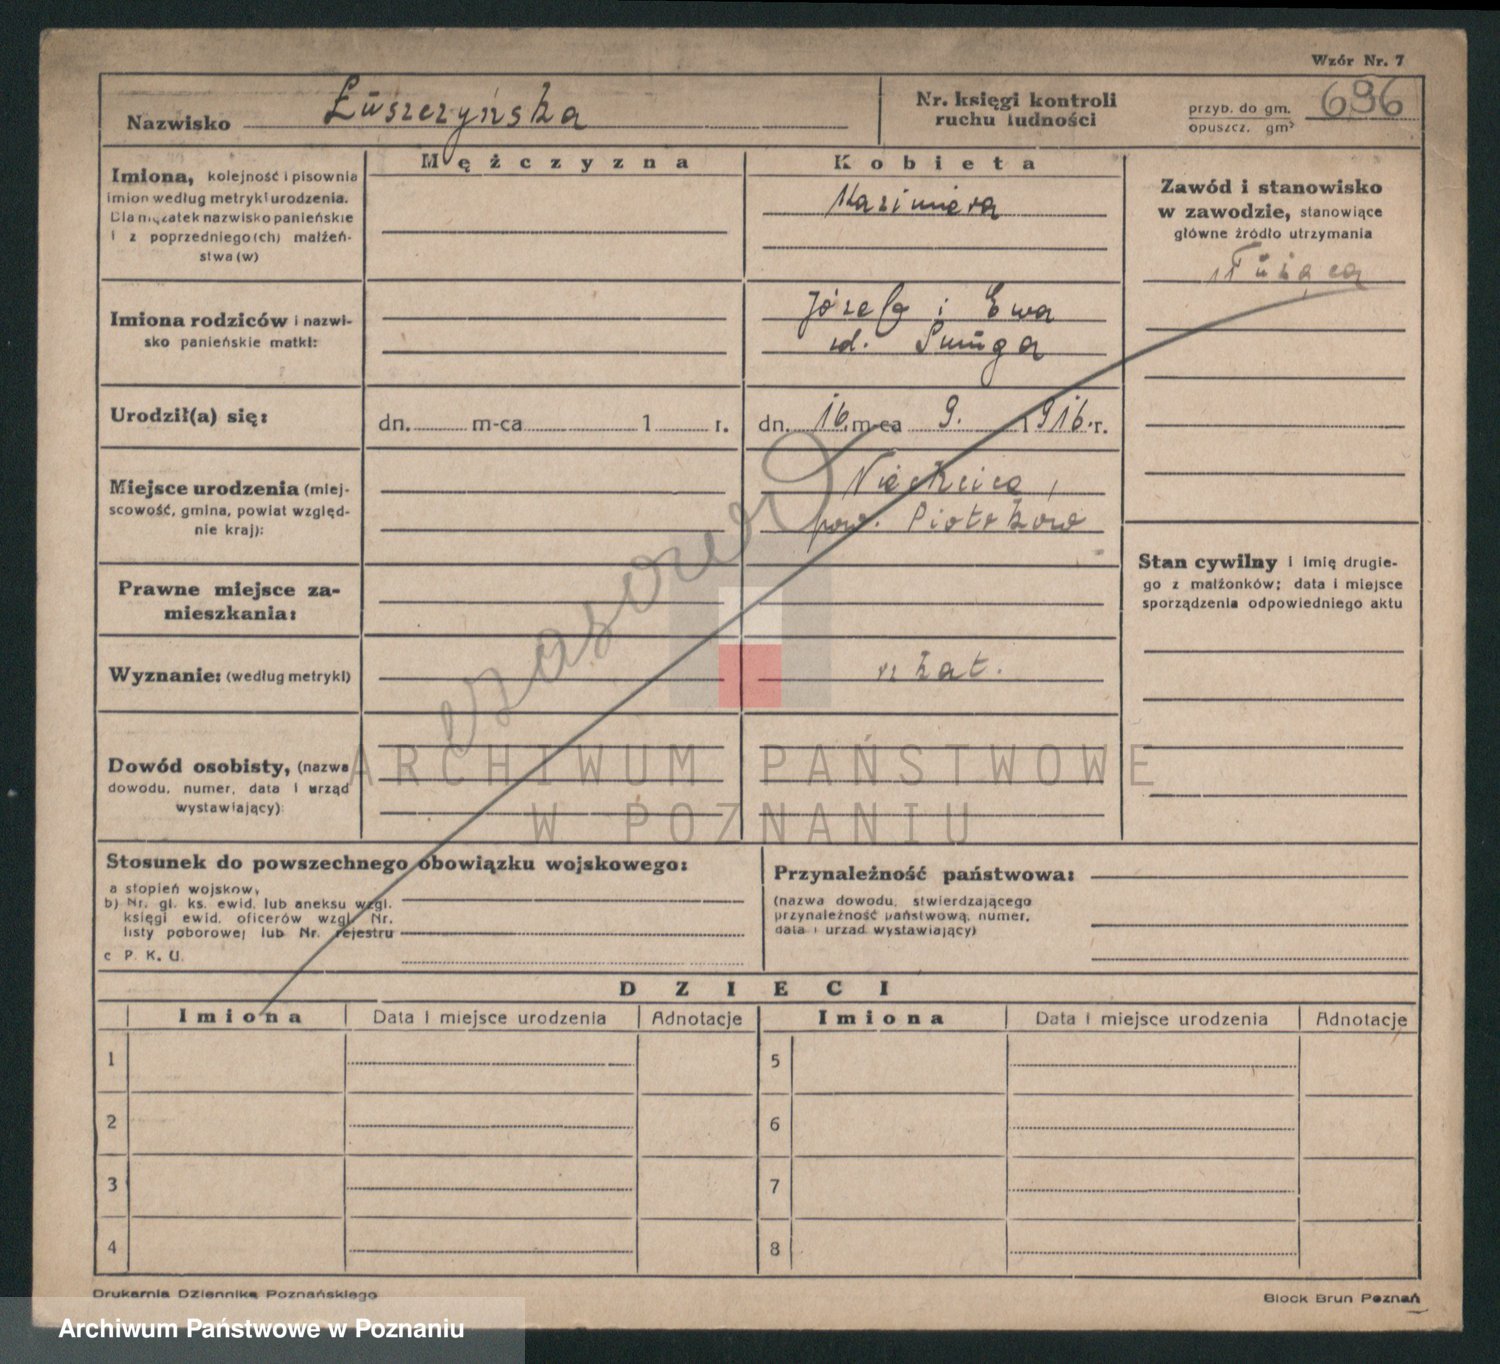 Wzór Nr. 7
Nazwisko Łuszczyńska
Nr. księgi kontroli
ruchu ludności
przyb. do gm.
opuszcz. gm
696
Mężczyzna
Kobieta
Imiona, kolejność i pisownia
imion według metryki urodzenia.
Dla mężatek nazwisko panieńskie
i z poprzedniego(ch) małżeń-
stwa(w)
Kazimiera
Zawód i stanowisko
w zawodzie, stanowiące
główne źródło utrzymania
służąca
Imiona rodziców i nazwi-
sko panieńskie matki:
Józef i Ewa
Urodził(a) się:
dn. m-ca 1 r.
dn. 16. m-ca 9. 1916. r.
Miejsce urodzenia (miej-
scowość, gmina, powiat względ-
nie kraj):
pow. Piotrków
Stan cywilny i imię drugie-
go z małżonków; data i miejsce
sporządzenia odpowiedniego aktu
Prawne miejsce za-
mieszkania:
czasowo
Wyznanie: (według metryki)
rz kat.
Dowód osobisty, (nazwa
dowodu, numer, data i urząd
wystawiający):
ARCHIWUM PAŃSTWOWE
W POZNANIU
Stosunek do powszechnego obowiązku wojskowego:
a stopień wojskow,
b) Nr. gl. ks. ewid. lub aneksu wzgl.
księgi ewid. oficerów wzgl. Nr.
listy poborowej lub Nr. rejestru
c P. K. U.
Przynależność państwowa:
(nazwa dowodu, stwierdzającego
przynależność państwową, numer,
data i urząd wystawiający)
DZIECI
Imiona Data i miejsce urodzenia Adnotacje Imiona Data i miejsce urodzenia Adnotacje
1 5
2 6
3 7
4 8
Drukarnia Dziennika Poznańskiego
Block Brun Poznań
Archiwum Państwowe w Poznaniu